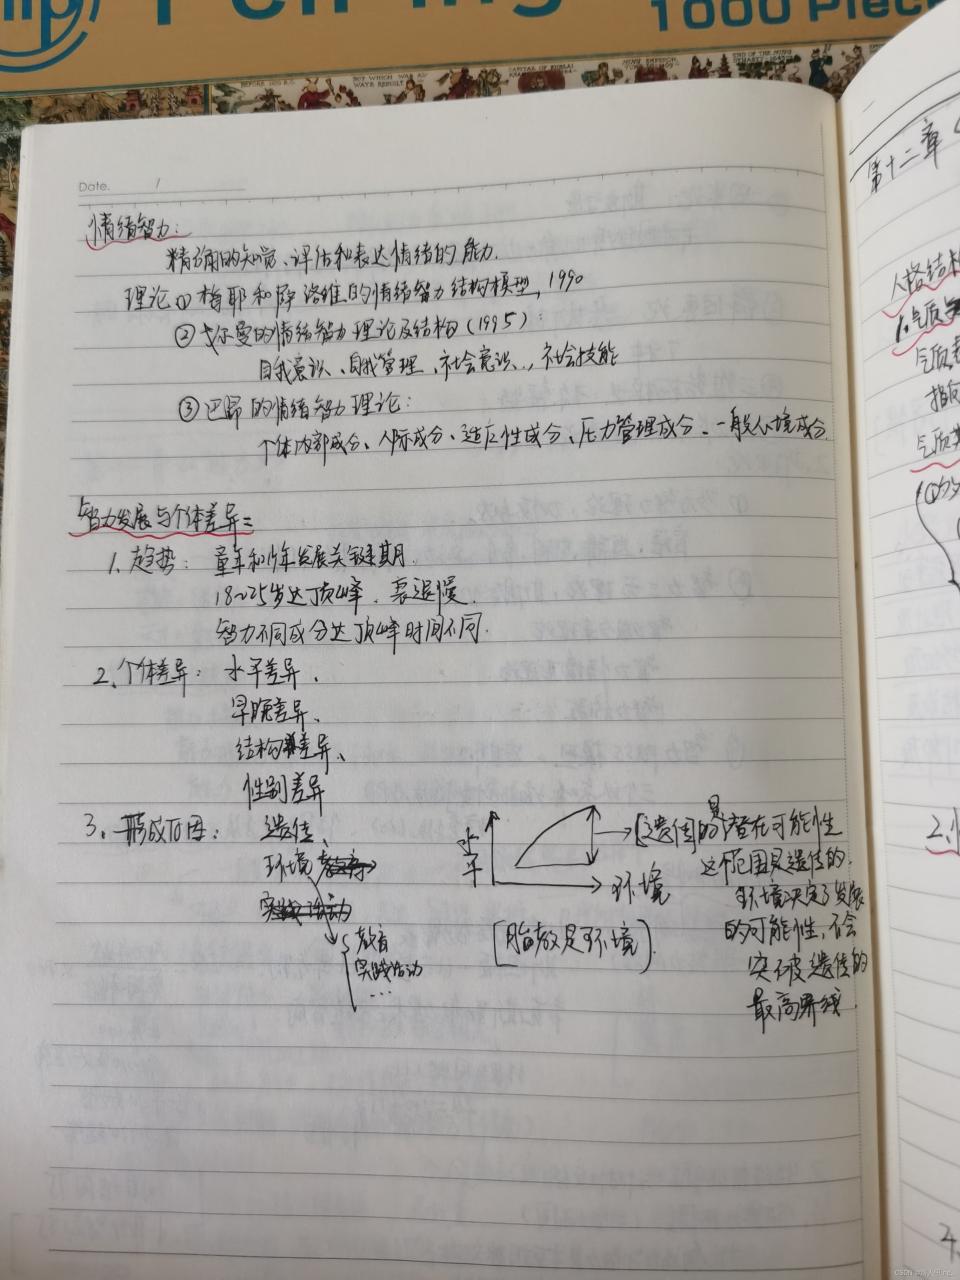 1000 Piec
Date.
情绪智力：
精确的知觉、评估和表达情绪的能力.
理论①梅耶和萨洛维的情绪智力结构模型，1990
②戈尔曼的情绪智力理论及结构(1995)：
自我意识、自我管理、社会意识、社会技能
③巴昂的情绪智力理论：
个体内部成分、人际成分、适应性成分、压力管理成分、一般心境成分.
智力发展与个体差异：
1、趋势：童年和少年发展关键期.
18~25岁达顶峰、衰退慢.
智力不同成分达顶峰时间不同.
2、个体差异：水平差异、
早晚差异、
结构差异、
性别差异
3、形成原因：遗传、
环境
教育
实践活动
...
水平
环境
[胎教是环境].
遗传的潜在可能性
这个范围是遗传的.
环境决定了发展
的可能性，不会
突破遗传的
最高界线.
第十二章
人格结构
1.气质
气质
指
气质类
2.
4.